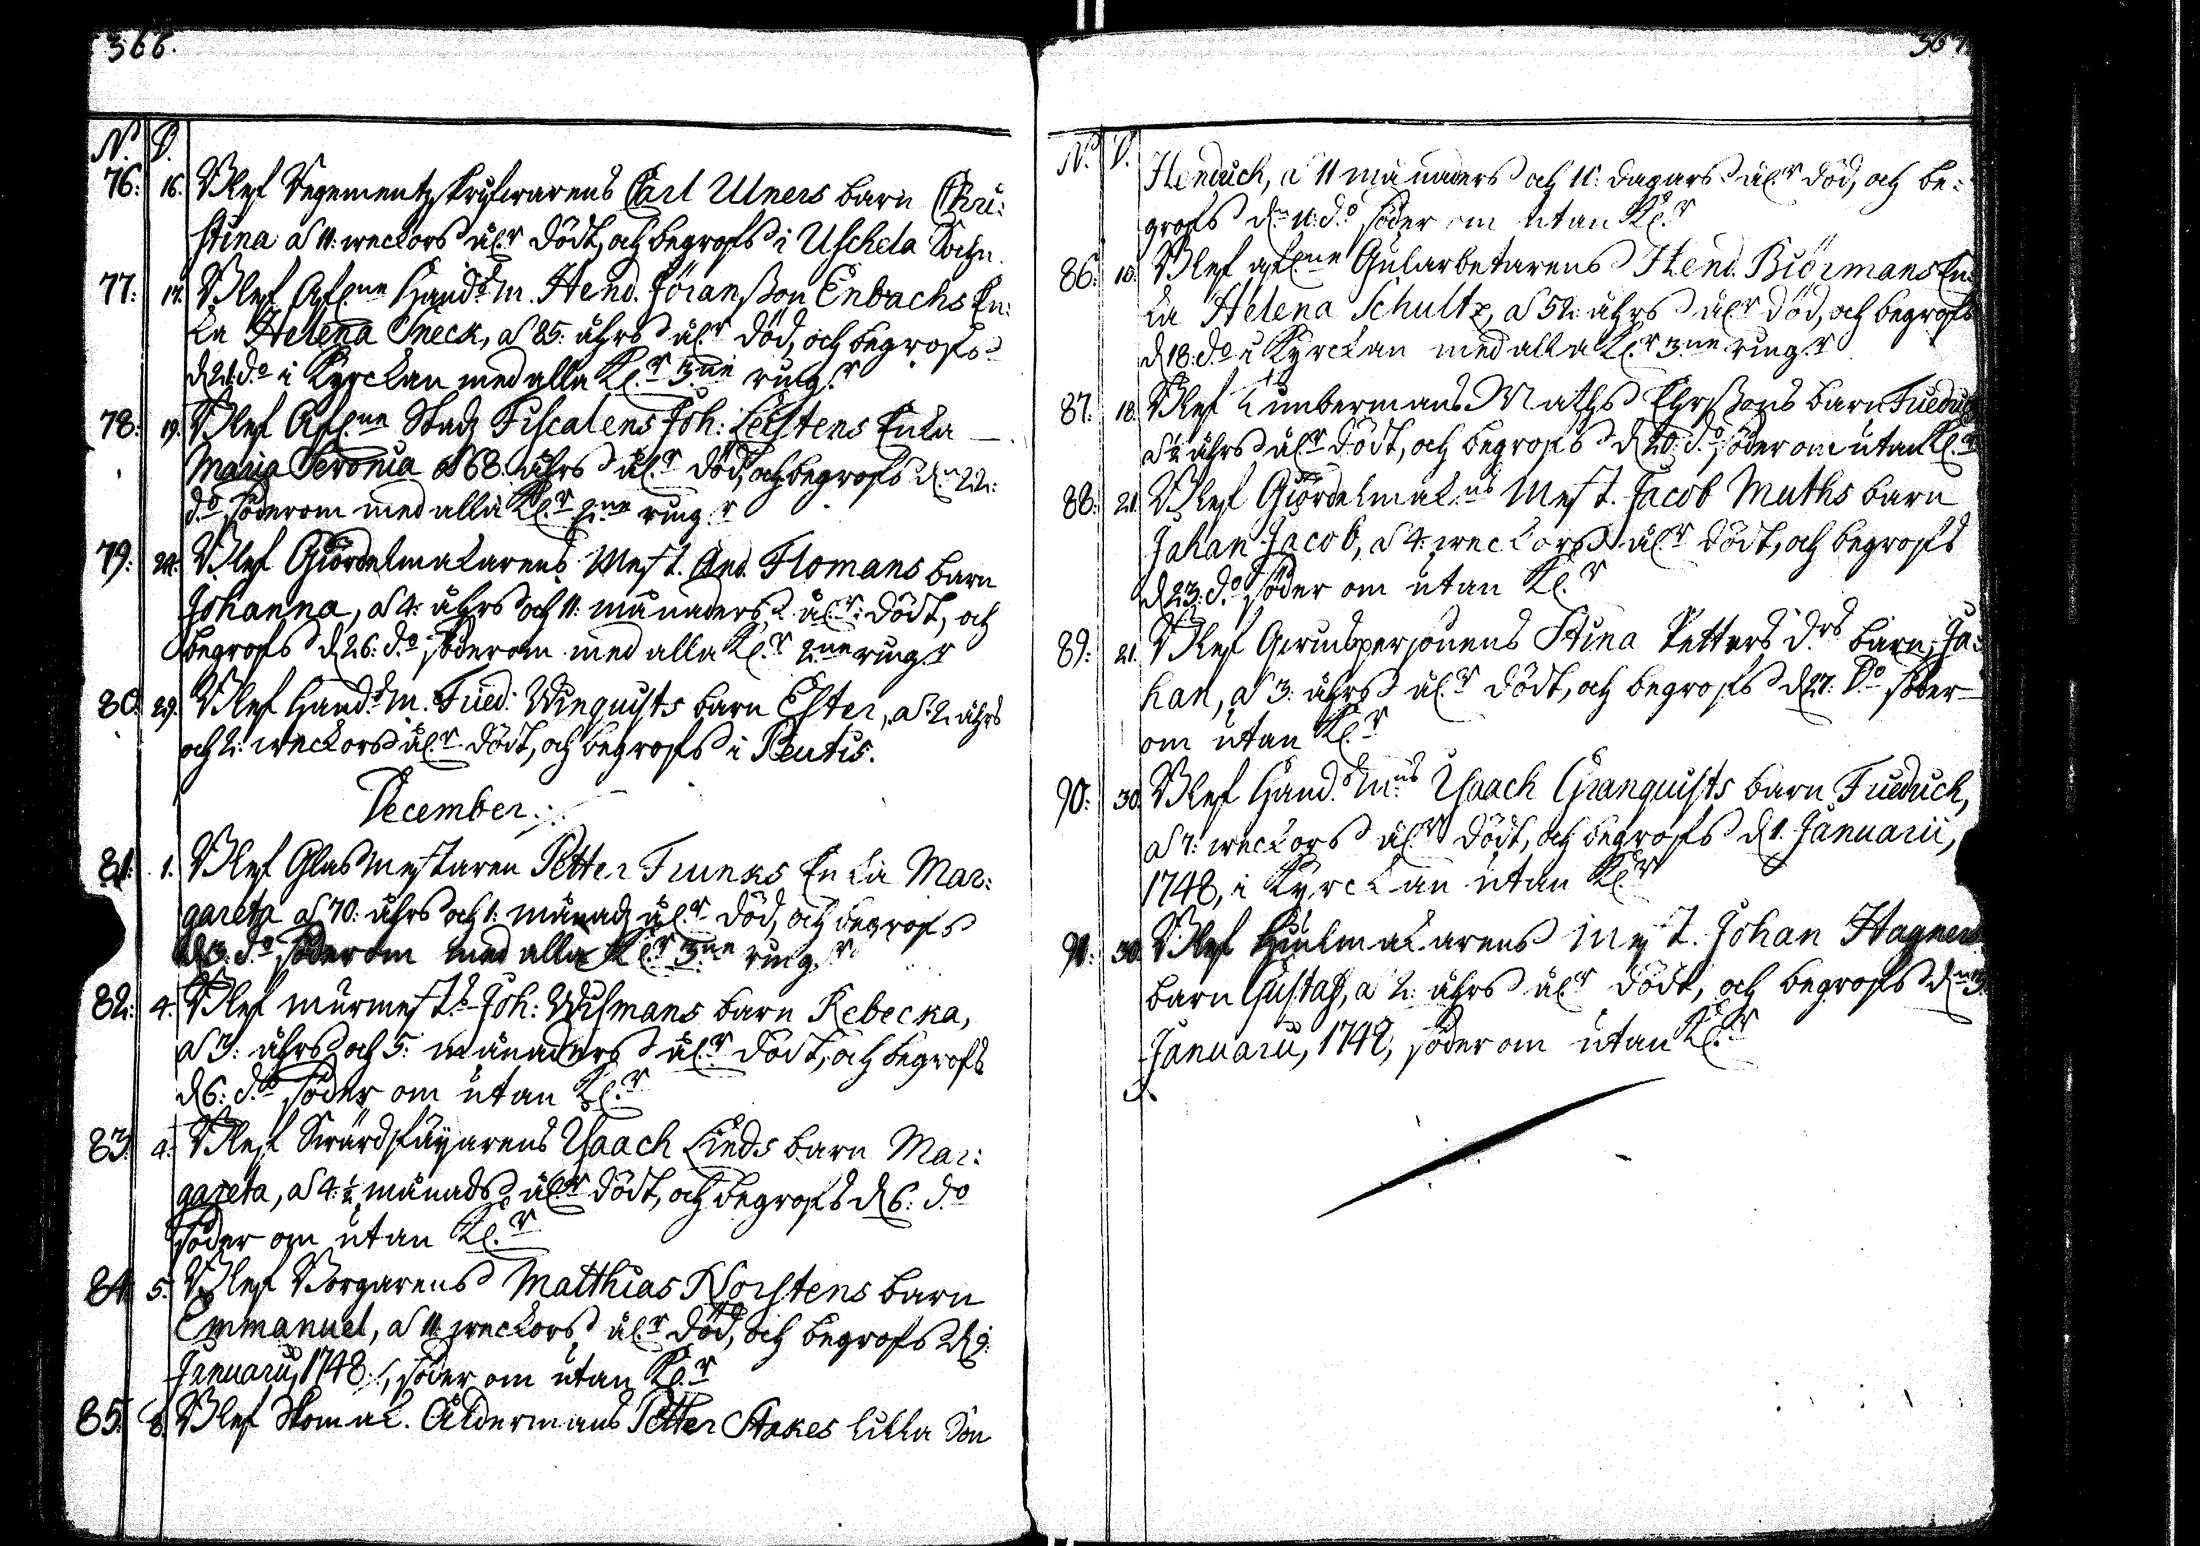 366.
N. D.
76: 16. Blef Regementz skrifwarens Carl Ulners barn Chri:
stina a 11: weckors ål.r dödt, och begrofs i Uschela Sochn.
77: 17. Blef Afl.ne Hand.m. Hend. Jöransson Enbachs En:
ka Helena Sneck, a 85: åhrs ål.r död, och begrofs
d 21. d.o i Kyrckan med alla Kl.r 3.ne ring.r
78: 19. Blef Afl.ne Stadz Fiscalens Joh: Leistens Enka
Maria Seronia a 68. åhrs ål.r död, och begrofs d.n 22:
d.o söder om med alla Kl.r 2.ne ring.r
79: 24. Blef Giördelmakarens Mest. And. Flomans barn
Johanna, a 4: åhrs och 11: månaders ål.r dödt, och
begrofs d 26: d.o söder om med alla Kl.r 2.ne ring.r
80. 29. Blef Hand.m. Fried: Winquists barn Ester, a 2 åhrs
och 2: weckors ål.r dödt, och begrofs i Pentis.
December:
81: 1. Blef Glasmestaren Petter Funks Enka Mar:
gareta a 70: åhrs och 1: månadz ål.r död, och begrofs
d 3: d.o söder om med alla Kl.r 3.ne ring.r
82: 4. Blef murmest. Joh: Wismans barn Rebecka,
a 3: åhrs och 5: månaders ål.r dödt, och begrofs
d 6: d.o söder om utan Kl.r
83. 4. Blef Swärdfäyarens Isaach Linds barn Mar:
gareta, a 4 1/2 månads ål.r dödt, och begrofs d 6: d.o
söder om utan Kl.r
84. 5. Blef Borgarens Matthias Norstens barn
Emmanuel, a 11 weckors ål.r död, och begrofs d 9:
Januarij, 1748, söder om utan Kl.r
85. 8. Blef Skomak. Åldermans Petter Stakes lilla Son
367
N. D.
Hendrich, a 11 månaders och 11: dagars ål.r död, och be:
grofs d.n 11: d.o söder om utan Kl.r
86: 15. Blef afl.ne Gularbetarens Hend. Biörmans En
ka Helena Schultz, a 52: åhrs ål.r död, och begrofs
d 18: d.o i Kyrckan med alla Kl.r 3.ne ring.r
87. 18. Blef Timbermans Maths Ehrssons barn Friedrich
a 1/2 åhrs ål.r dödt, och begrofs d 20: d.o söder om utan Kl.r
88: 21. Blef Giördelmak.ns Mest. Jacob Muths barn
Johan Jacob, a 4: weckors ål.r dödt, och begrofs
d 23: d.o söder om utan Kl.r
89: 21. Blef Qwinspersonens Stina Petters d.rs barn, Jo:
han, a 3: åhrs ål.r dödt, och begrofs d 27: D.o söder
om utan Kl.r
90: 30. Blef Hand.m.ns Isaach Granquists barn Friedrich,
a 7: weckors ål.r dödt, och begrofs d 1. Januarii,
1748, i Kyrckan utan Kl.r
91: 30. Blef Hiulmakarens mest. Johan Hagners
barn Gustaf, a 2: åhrs ål.r dödt, och begrofs d.n 3
Januarii, 1748, söder om utan Kl.r